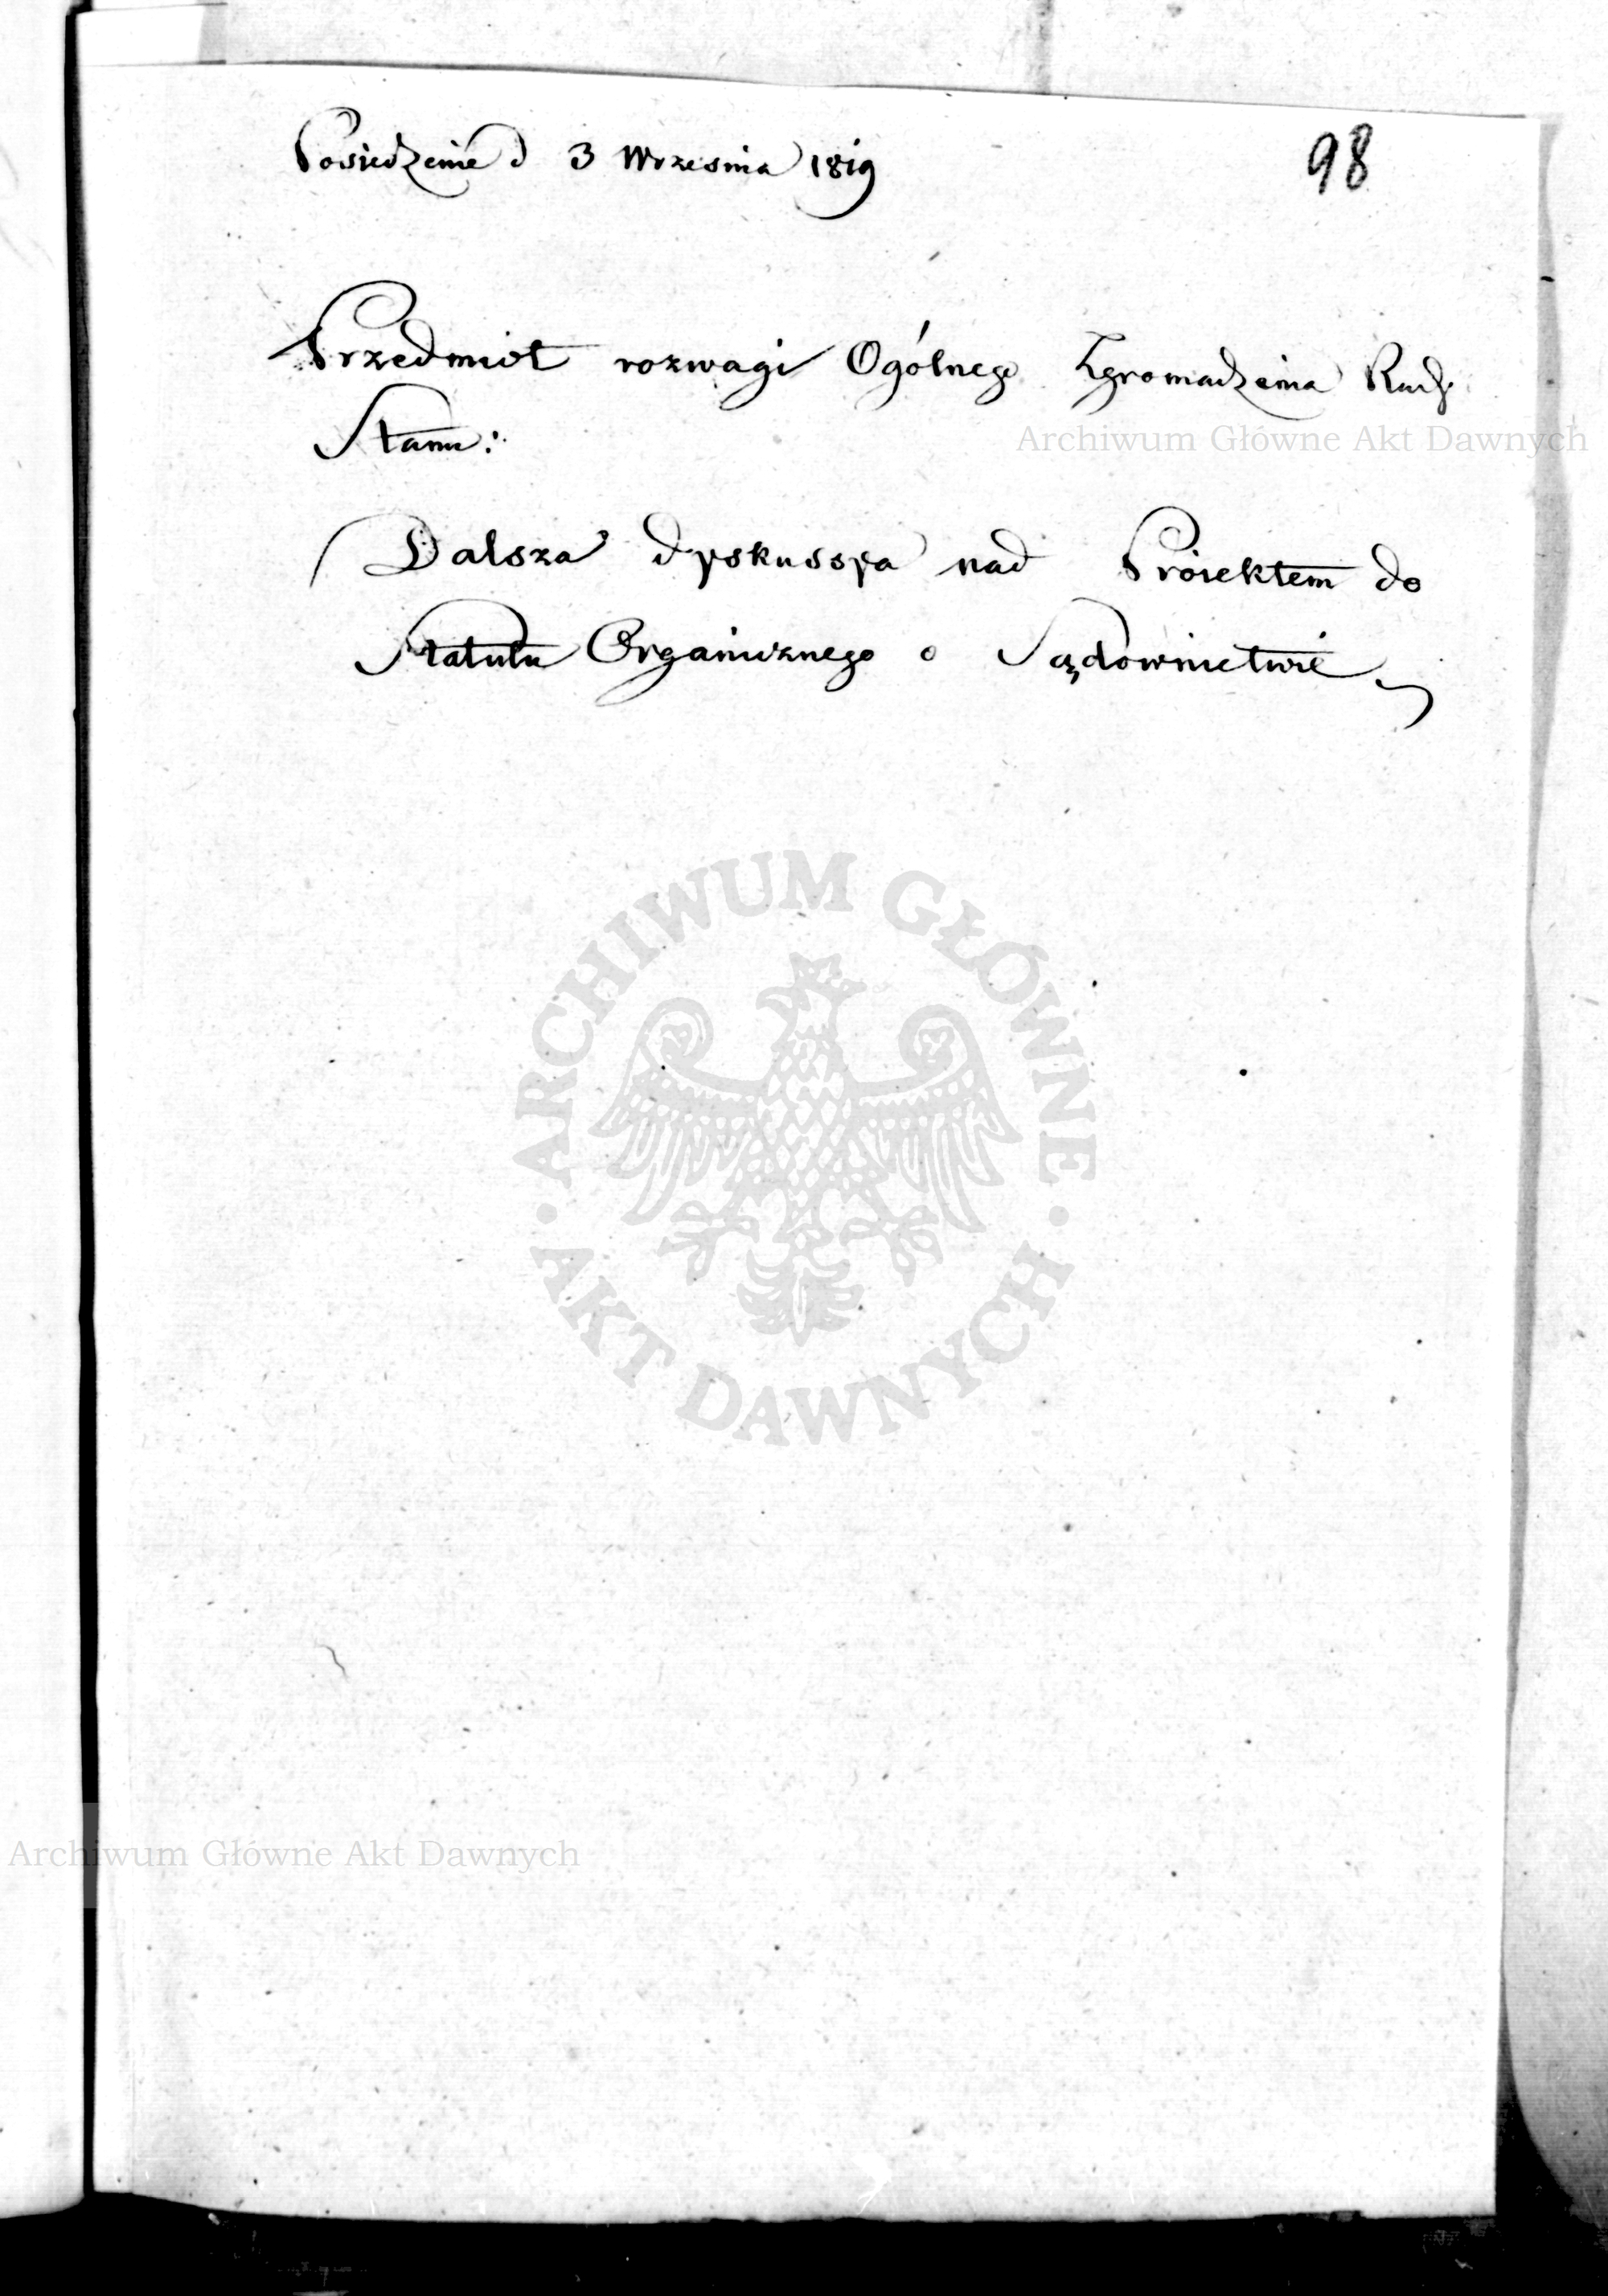 Posiedzenie d 3 Wrzesnia 1819
98
Przedmiot rozwagi Ogólnego Zgromadzenia Rady
Stanu:
Dalsza dyskussya nad Proiektem do
Statutu Organicznego o Sądownictwie
Archiwum Główne Akt Dawnych
ARCHIWUM GŁÓWNE
AKT DAWNYCH
Archiwum Główne Akt Dawnych